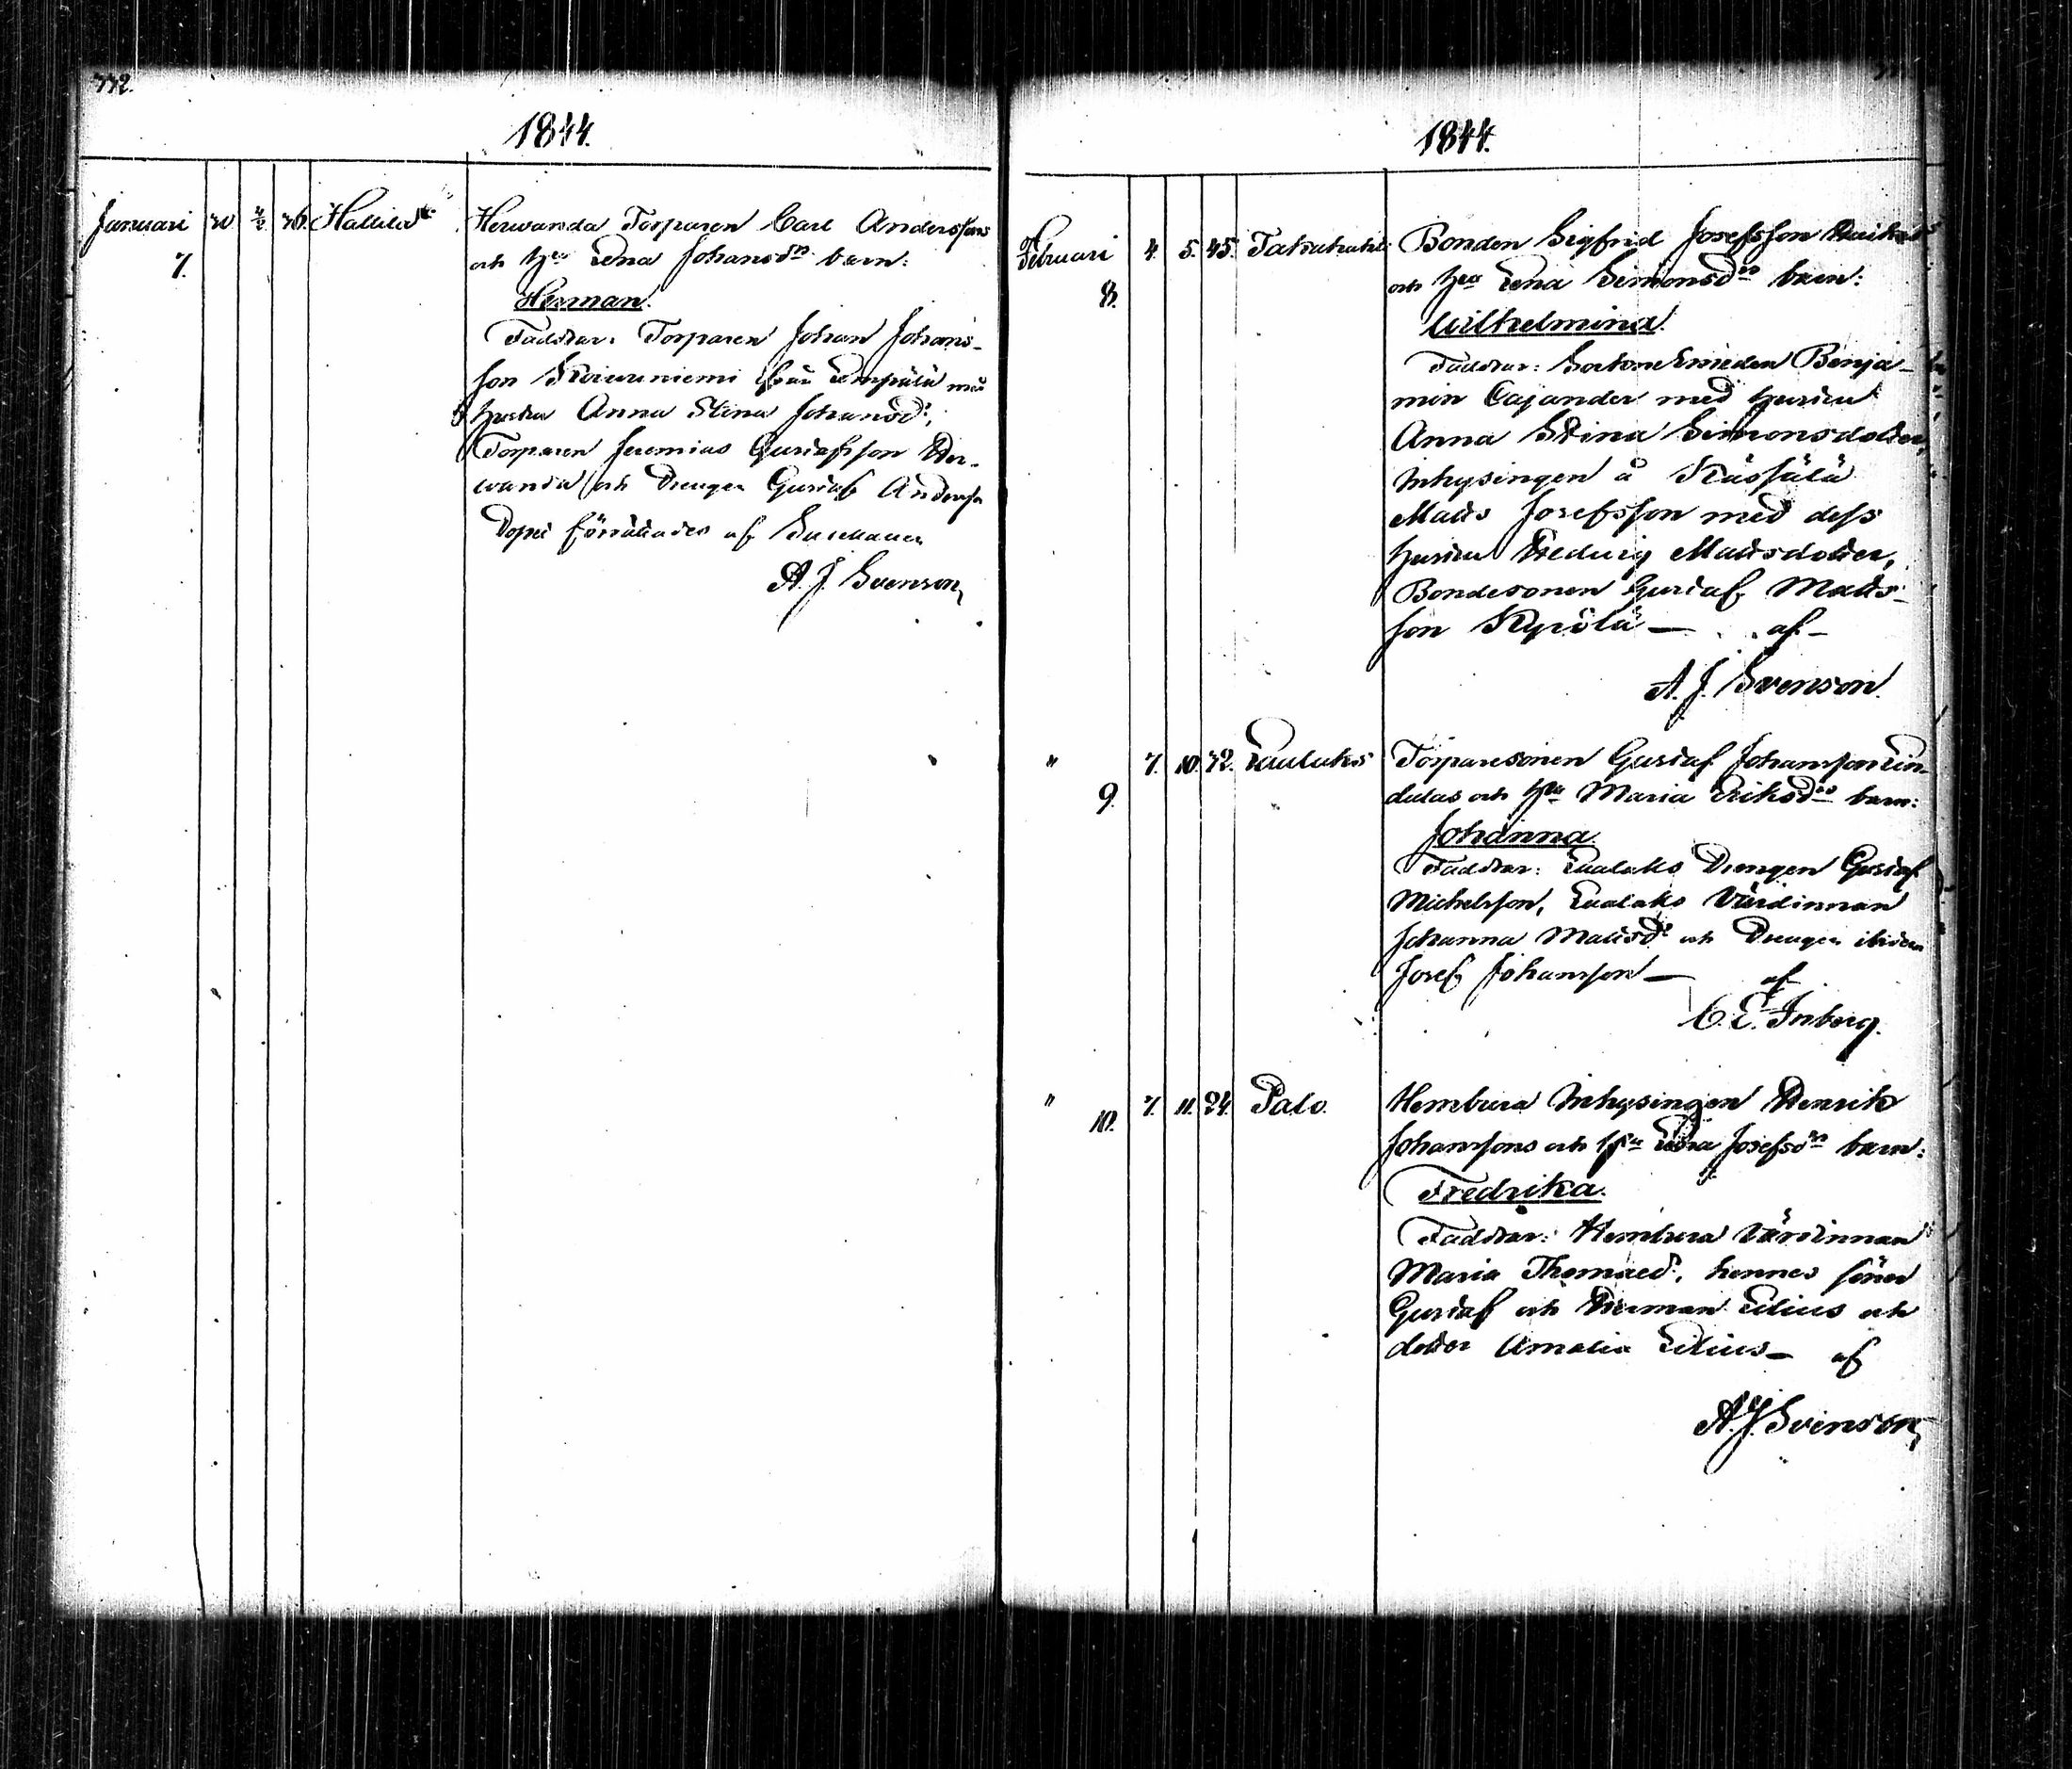 772.
1844.
Januari 30 4/2 36. Hallila
7.
Herwanda Torparen Carl Anderssons
och hu Lena Johansdrs barn:
Herman.
Faddrar: Torparen Johan Johans-
son Koivuniemi från Lempälä med
hustru Anna Stina Johansdr,
Torparen Jeremias Gustafsson Her-
wanda och Drengen Gustaf Andersson
Dopet förrättades af
A. J. Svenson,
1844.
Februari 4. 5. 45.
8.
Bonden Sigfrid Josefsson
och hu Lena Simonsdrs barn:
Wilhelmina.
Faddrar: Sockne Smeden Benja-
min Cajander med hustru
Anna Stina Simonsdotter,
Inhysingen å
Matts Josefsson med dess
hustru Hedwig Mattsdotter,
Bondesonen Gustaf Matts-
son Kyrölä — af —
A. J. Svenson.
" 7. 10. 72. Laulaks
9.
Torparesonen Gustaf Johansson Lin-
dulas och hu Maria Eriksdrs barn:
Johanna.
Faddrar: Laulaks Drengen Gustaf
Michelsson, Laulaks Värdinnan
Johanna Mattsdr och Drengen ibidem
Josef Johansson — af
C. E. Inberg.
" 7. 11. 24. Palo.
10.
Hembura Inhysingen Henrik
Johanssons och hu Lena Josefsdrs barn:
Fredrika.
Faddrar: Hembura Värdinnan
Maria Thomaed., hennes söner
Gustaf och Herman Lilius och
dotter Amalia Lilius — af
A. J. Svenson,